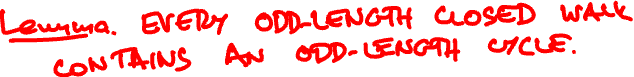 Lemma. EVERY ODD-LENGTH CLOSED WALK
CONTAINS AN ODD-LENGTH CYCLE.